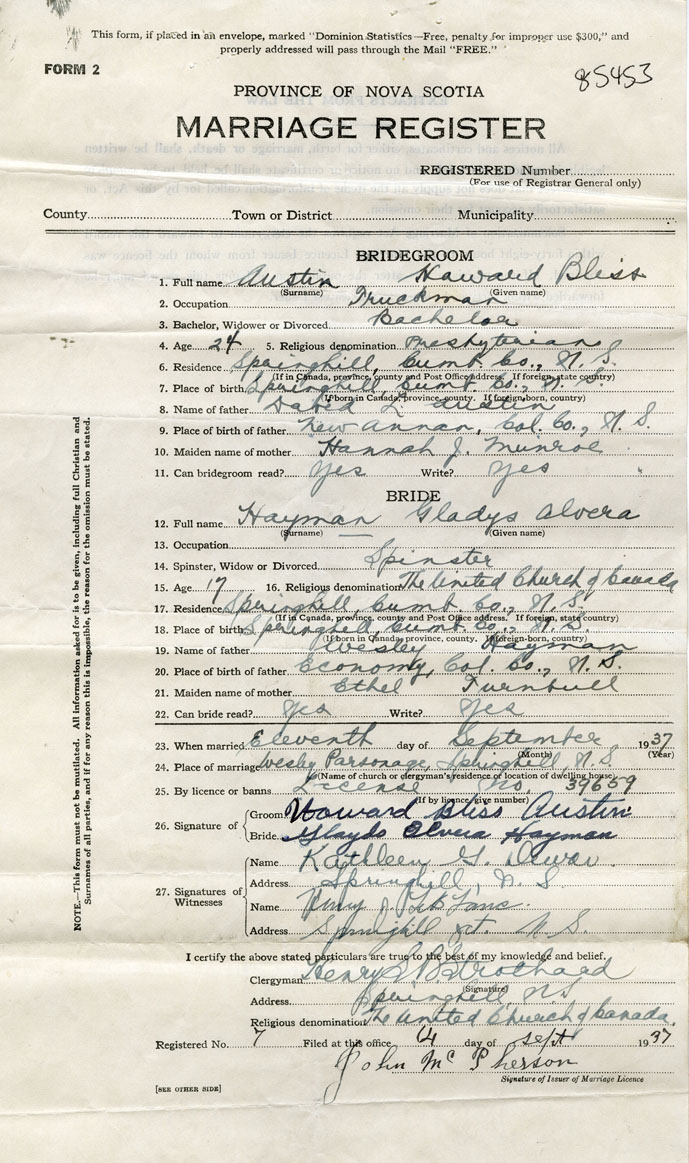 This form, if placed in an envelope, marked "Dominion Statistics—Free, penalty for improper use $300," and
properly addressed will pass through the Mail "FREE."
FORM 2
85453
PROVINCE OF NOVA SCOTIA
MARRIAGE REGISTER
REGISTERED Number
(For use of Registrar General only)
County Town or District Municipality
BRIDEGROOM
1. Full name Austin Howard Bliss
(Surname) (Given name)
2. Occupation Truckman
3. Bachelor, Widower or Divorced Bachelor
4. Age 24 5. Religious denomination Presbyterian
6. Residence Springhill, Cumb. Co., N. S.
(If in Canada, province, county and Post Office address. If foreign, state country)
7. Place of birth Springhill, Cumb. Co., N. S.
(If born in Canada, province, county. If foreign-born, country)
8. Name of father David L. Austin
9. Place of birth of father New Annan, Col. Co., N. S.
10. Maiden name of mother Hannah J. Munroe
11. Can bridegroom read? Yes Write? Yes
BRIDE
12. Full name Hayman Gladys Alvera
(Surname) (Given name)
13. Occupation
14. Spinster, Widow or Divorced Spinster
15. Age 17 16. Religious denomination The United Church of Canada
17. Residence Springhill, Cumb. Co., N. S.
(If in Canada, province, county and Post Office address. If foreign, state country)
18. Place of birth Springhill, Cumb. Co., N. S.
(If born in Canada, province, county. If foreign-born, country)
19. Name of father Wesley Hayman
20. Place of birth of father Economy, Col. Co., N. S.
21. Maiden name of mother Ethel Turnbull
22. Can bride read? Yes Write? Yes
23. When married Eleventh day of September 1937
(Month) (Year)
24. Place of marriage Wesley Parsonage, Springhill, N. S.
(Name of church or clergyman's residence or location of dwelling house)
25. By licence or banns License No. 39659
(If by licence, give number)
26. Signature of
Groom Howard Bliss Austin
Bride Glayds Elvera Hayman
27. Signatures of Witnesses
Name Kathleen G.
Address Springhill, N. S.
Name
Address Springhill N. S.
I certify the above stated particulars are true to the best of my knowledge and belief.
Clergyman Henry
(Signature)
Address Springhill N S
Religious denomination The United Church of Canada.
Registered No. 7 Filed at this office day of Sept 1937
John McPherson
Signature of Issuer of Marriage Licence
[SEE OTHER SIDE]
NOTE.—This form must not be mutilated. All information asked for is to be given, including full Christian and
Surnames of all parties, and if for any reason this is impossible, the reason for the omission must be stated.